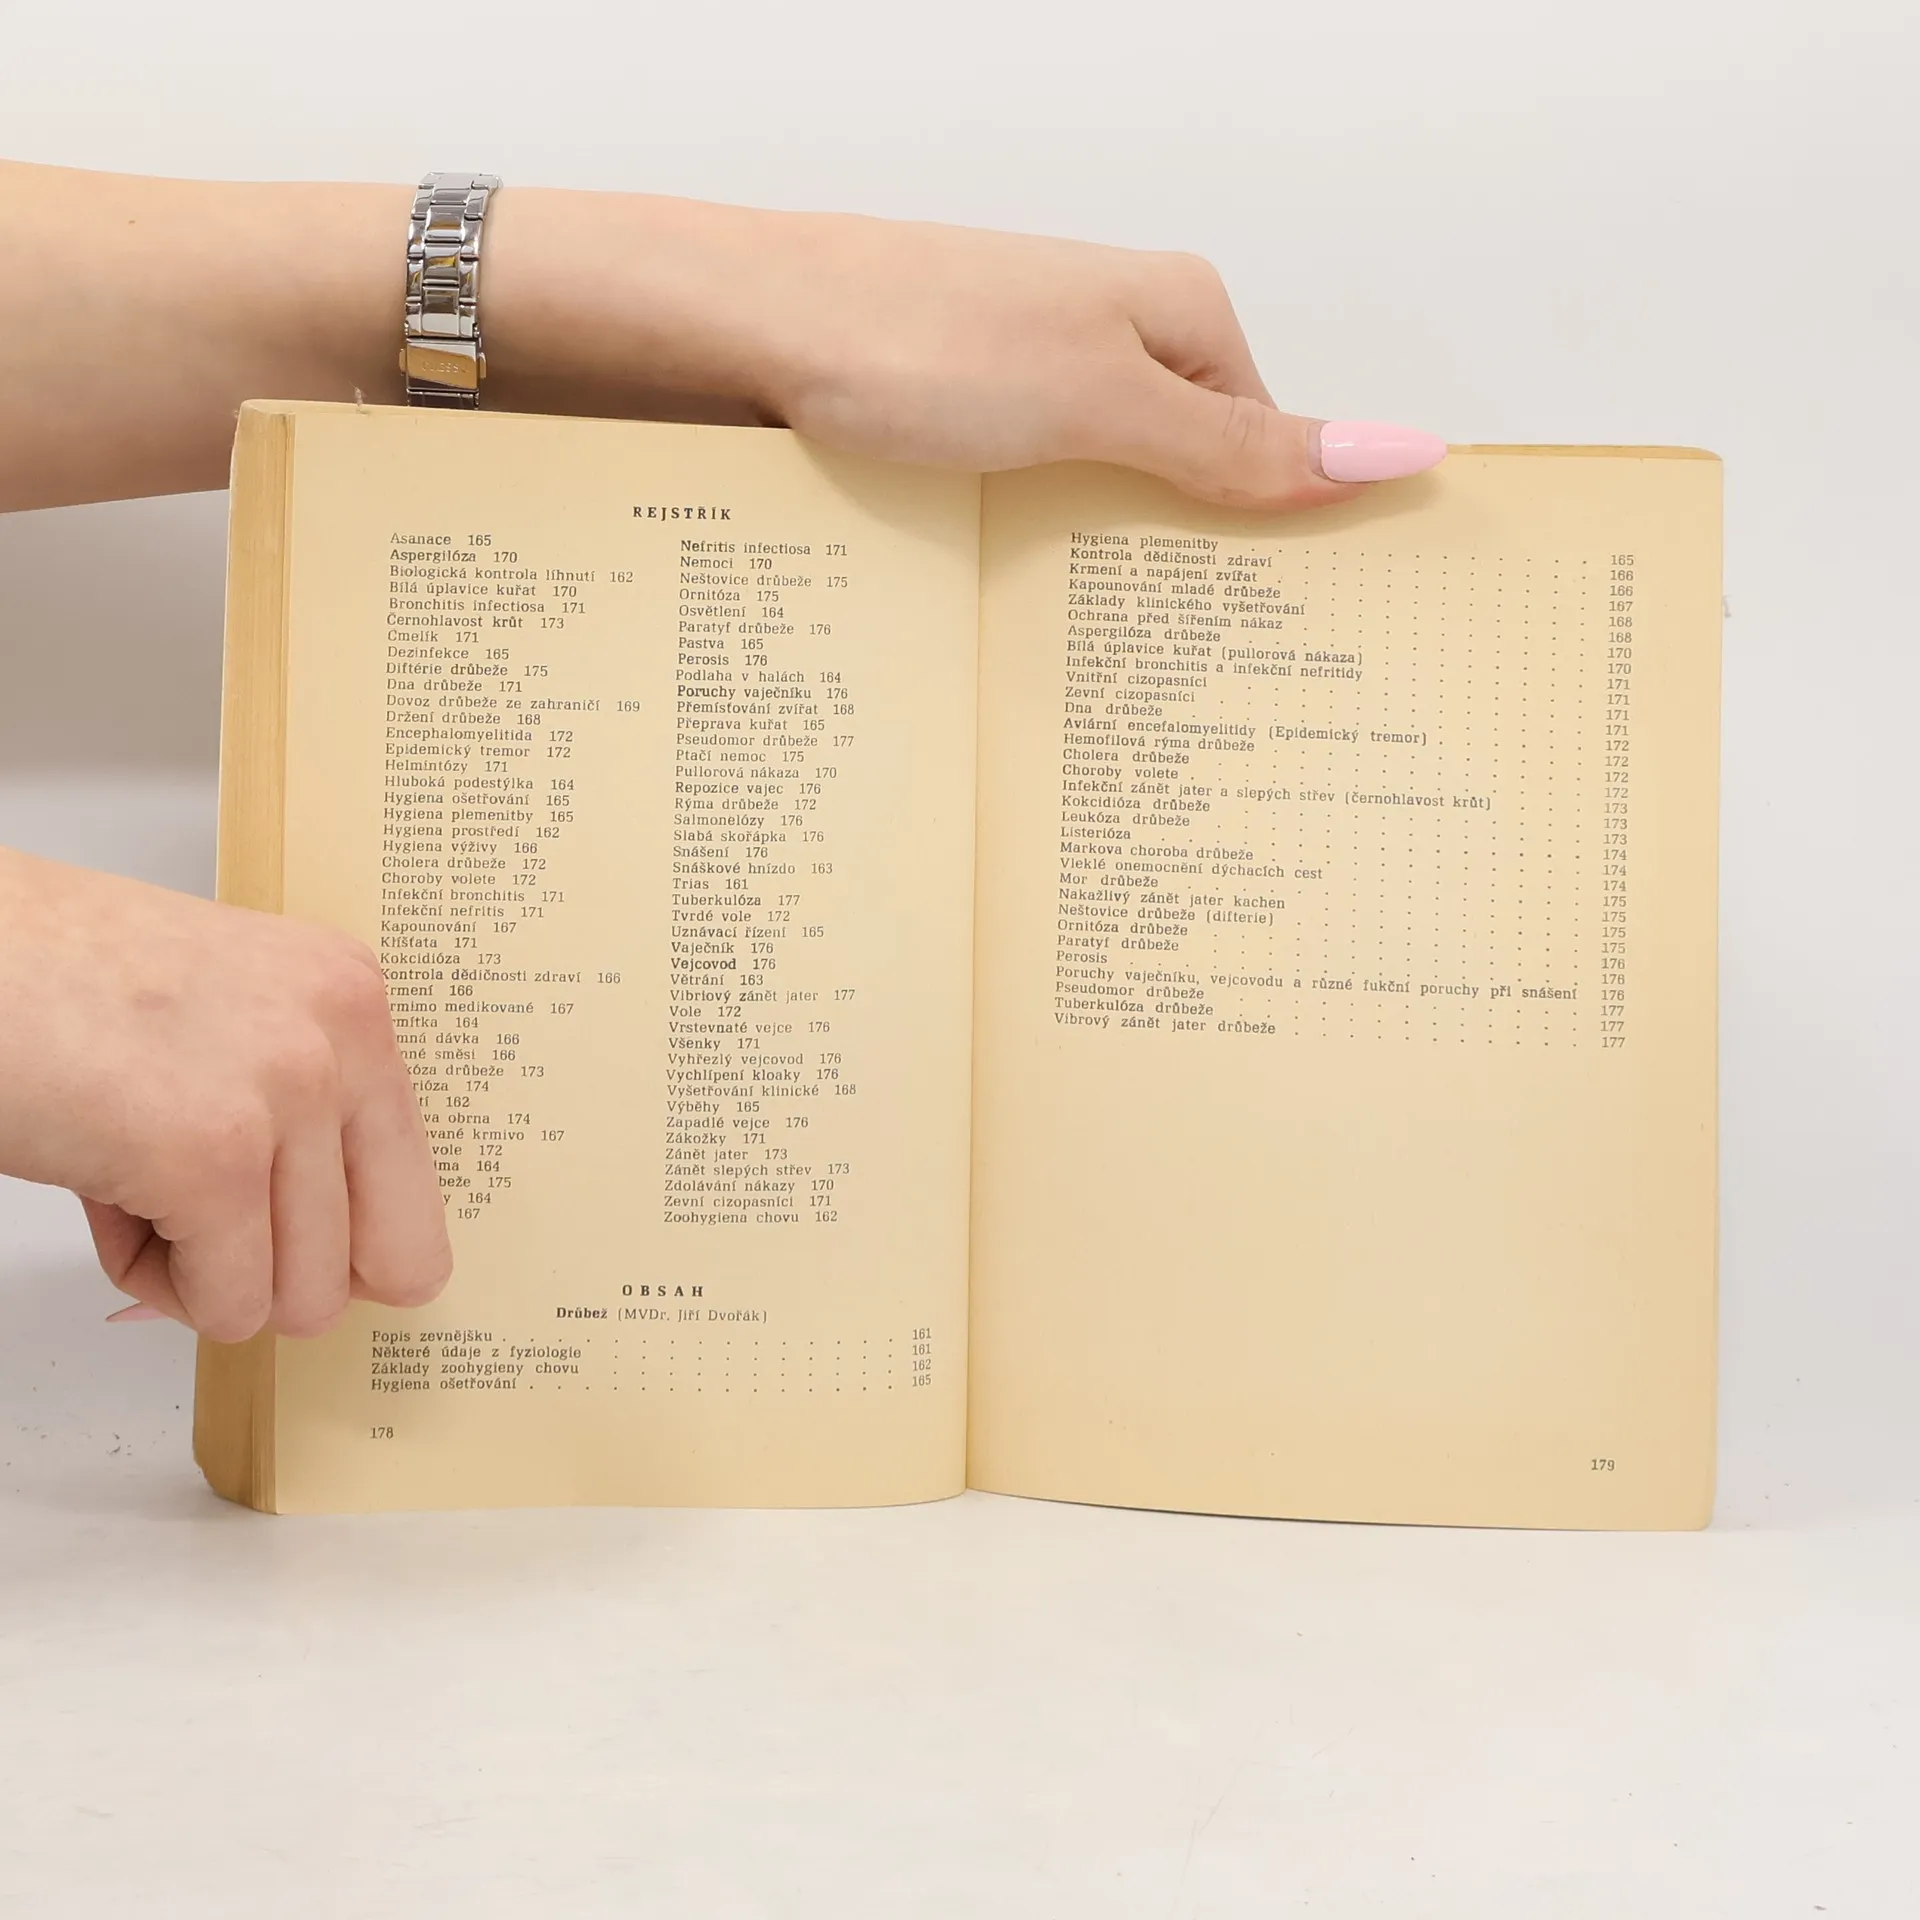 REJSTŘÍK
Asanace 165
Aspergilóza 170
Biologická kontrola líhnutí 162
Bílá úplavice kuřat 170
Bronchitis infectiosa 171
Černohlavost krůt 173
Čmelík 171
Dezinfekce 165
Diftérie drůbeže 175
Dna drůbeže 171
Dovoz drůbeže ze zahraničí 169
Držení drůbeže 168
Encephalomyelitida 172
Epidemický tremor 172
Helmintózy 171
Hluboká podestýlka 164
Hygiena ošetřování 165
Hygiena plemenitby 165
Hygiena prostředí 162
Hygiena výživy 166
Cholera drůbeže 172
Choroby volete 172
Infekční bronchitis 171
Infekční nefritis 171
Kapounování 167
Klíšťata 171
Kokcidióza 173
Kontrola dědičnosti zdraví 166
Krmení 166
medikované 167
164
dávka 166
směsi 166
drůbeže 173
174
162
obrna 174
krmivo 167
vole 172
164
175
164
167
Nefritis infectiosa 171
Nemoci 170
Neštovice drůbeže 175
Ornitóza 175
Osvětlení 164
Paratyf drůbeže 176
Pastva 165
Perosis 176
Podlaha v halách 164
Poruchy vaječníku 176
Přemísťování zvířat 168
Přeprava kuřat 165
Pseudomor drůbeže 177
Ptačí nemoc 175
Pullorová nákaza 170
Repozice vajec 176
Rýma drůbeže 172
Salmonelózy 176
Slabá skořápka 176
Snášení 176
Snáškové hnízdo 163
Trias 161
Tuberkulóza 177
Tvrdé vole 172
Uznávací řízení 165
Vaječník 176
Vejcovod 176
Větrání 163
Vibriový zánět jater 177
Vole 172
Vrstevnaté vejce 176
Všenky 171
Vyhřezlý vejcovod 176
Vychlípení kloaky 176
Vyšetřování klinické 168
Výběhy 165
Zapadlé vejce 176
Zákožky 171
Zánět jater 173
Zánět slepých střev 173
Zdolávání nákazy 170
Zevní cizopasníci 171
Zoohygiena chovu 162
OBSAH
Drůbež (MVDr. Jiří Dvořák)
Popis zevnějšku . . . . . . . . . . . . . . . 161
Některé údaje z fyziologie . . . . . . . . . . . 161
Základy zoohygieny chovu . . . . . . . . . . . 162
Hygiena ošetřování . . . . . . . . . . . . . . 165
178
Hygiena plemenitby . . . . . . . . . . . . . 165
Kontrola dědičnosti zdraví . . . . . . . . . . . 166
Krmení a napájení zvířat . . . . . . . . . . . . 166
Kapounování mladé drůbeže . . . . . . . . . . . 167
Základy klinického vyšetřování . . . . . . . . . . 168
Ochrana před šířením nákaz . . . . . . . . . . . 168
Aspergilóza drůbeže . . . . . . . . . . . . . 170
Bílá úplavice kuřat (pullorová nákaza) . . . . . . . . 170
Infekční bronchitis a infekční nefritidy . . . . . . . . 171
Vnitřní cizopasníci . . . . . . . . . . . . . 171
Zevní cizopasníci . . . . . . . . . . . . . . 171
Dna drůbeže . . . . . . . . . . . . . . . 171
Aviární encefalomyelitidy (Epidemický tremor) . . . . . . 172
Hemofilová rýma drůbeže . . . . . . . . . . . . 172
Cholera drůbeže . . . . . . . . . . . . . . 172
Choroby volete . . . . . . . . . . . . . . . 172
Infekční zánět jater a slepých střev (černohlavost krůt) . . . . 173
Kokcidióza drůbeže . . . . . . . . . . . . . 173
Leukóza drůbeže . . . . . . . . . . . . . . 173
Listerióza . . . . . . . . . . . . . . . . 174
Markova choroba drůbeže . . . . . . . . . . . . 174
Vleklé onemocnění dýchacích cest . . . . . . . . . 174
Mor drůbeže . . . . . . . . . . . . . . . 175
Nakažlivý zánět jater kachen . . . . . . . . . . . 175
Neštovice drůbeže (difterie) . . . . . . . . . . . 175
Ornitóza drůbeže . . . . . . . . . . . . . . 175
Paratyf drůbeže . . . . . . . . . . . . . . 176
Perosis . . . . . . . . . . . . . . . . . 176
Poruchy vaječníku, vejcovodu a různé fukční poruchy při snášení 176
Pseudomor drůbeže . . . . . . . . . . . . . 177
Tuberkulóza drůbeže . . . . . . . . . . . . . 177
Vibrový zánět jater drůbeže . . . . . . . . . . . 177
179